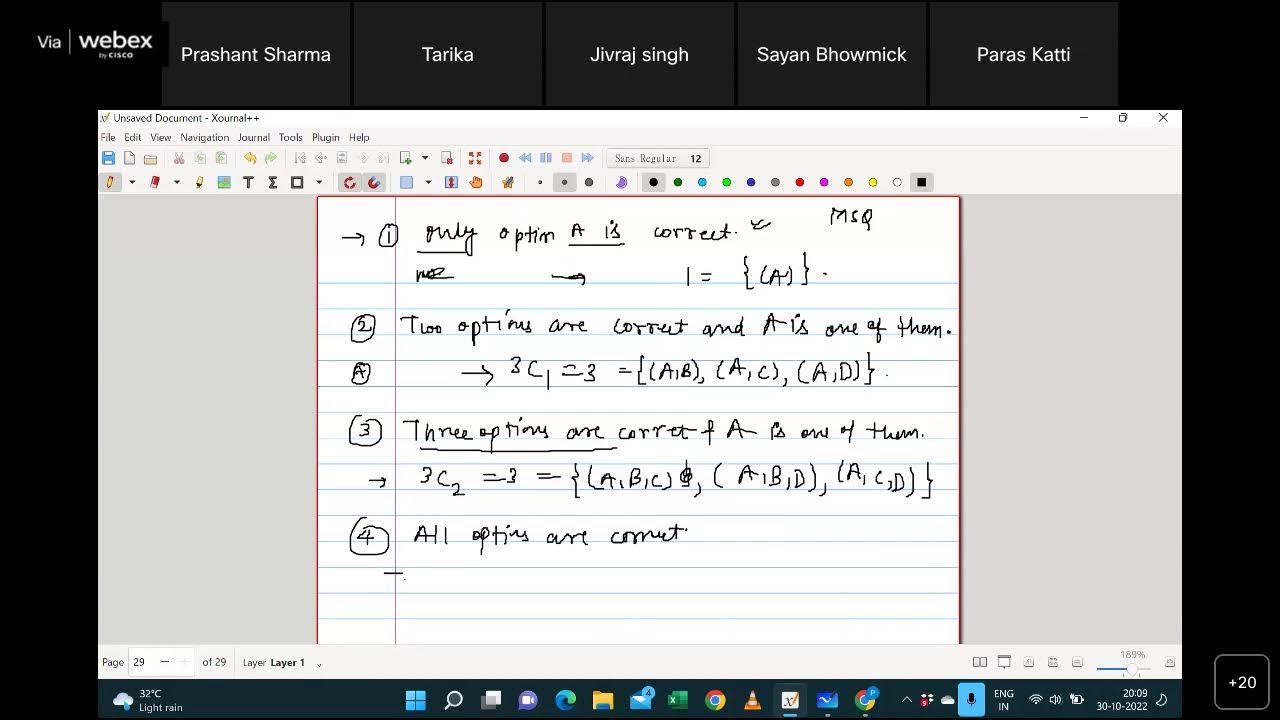 Via webex by CISCO
Prashant Sharma
Tarika
Jivraj singh
Sayan Bhowmick
Paras Katti
Unsaved Document - Xournal++
File Edit View Navigation Journal Tools Plugin Help
Sans Regular 12
→ ① only optin A is correct. MSQ
→ 1 = {(A)}.
② Two options are correct and A is one of them.
Ⓐ → 3C1 = 3 = {(A,B), (A,C), (A,D)}.
③ Three options are correct & A is one of them.
→ 3C2 = 3 = {(A,B,C), (A,B,D), (A,C,D)}
④ All optins are correct.
Page 29 of 29 Layer Layer 1
189%
+20
32°C
Light rain
4
P
ENG
IN
20:09
30-10-2022